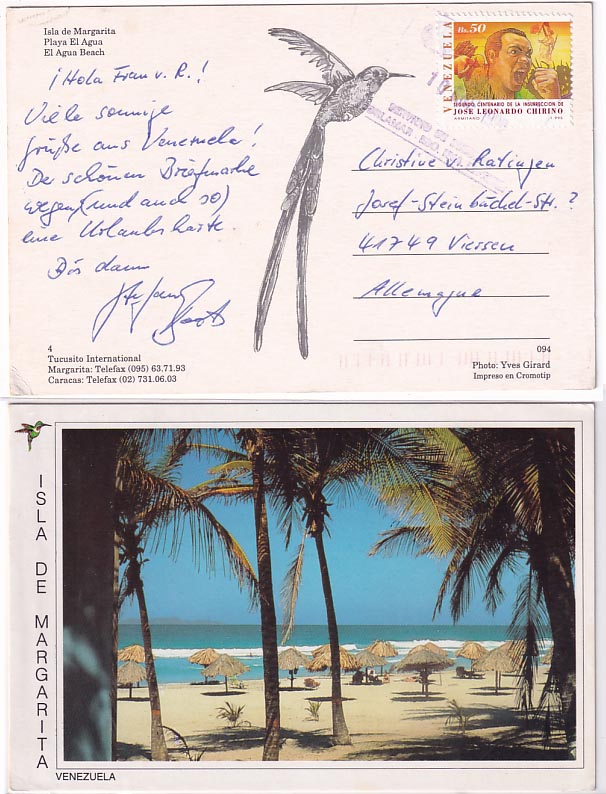 Isla de Margarita
Playa El Agua
El Agua Beach
¡Hola Frau v. R.!
Viele sonnige
Grüße aus Venezuela!
Der schönen Briefmarke
wegen (und auch so)
eine Urlaubskarte.
Bis dann
4
Tucusito International
Margarita: Telefax (095) 63.71.93
Caracas: Telefax (02) 731.06.03
VENEZUELA
Bs. 50
SEGUNDO CENTENARIO DE LA INSURRECCION DE
JOSE LEONARDO CHIRINO
Christine v. Ratingen
Josef-Steinbüchel-Str. ?
41749 Viersen
Allemagne
094
Photo: Yves Girard
Impreso en Cromotip
ISLA DE MARGARITA
VENEZUELA